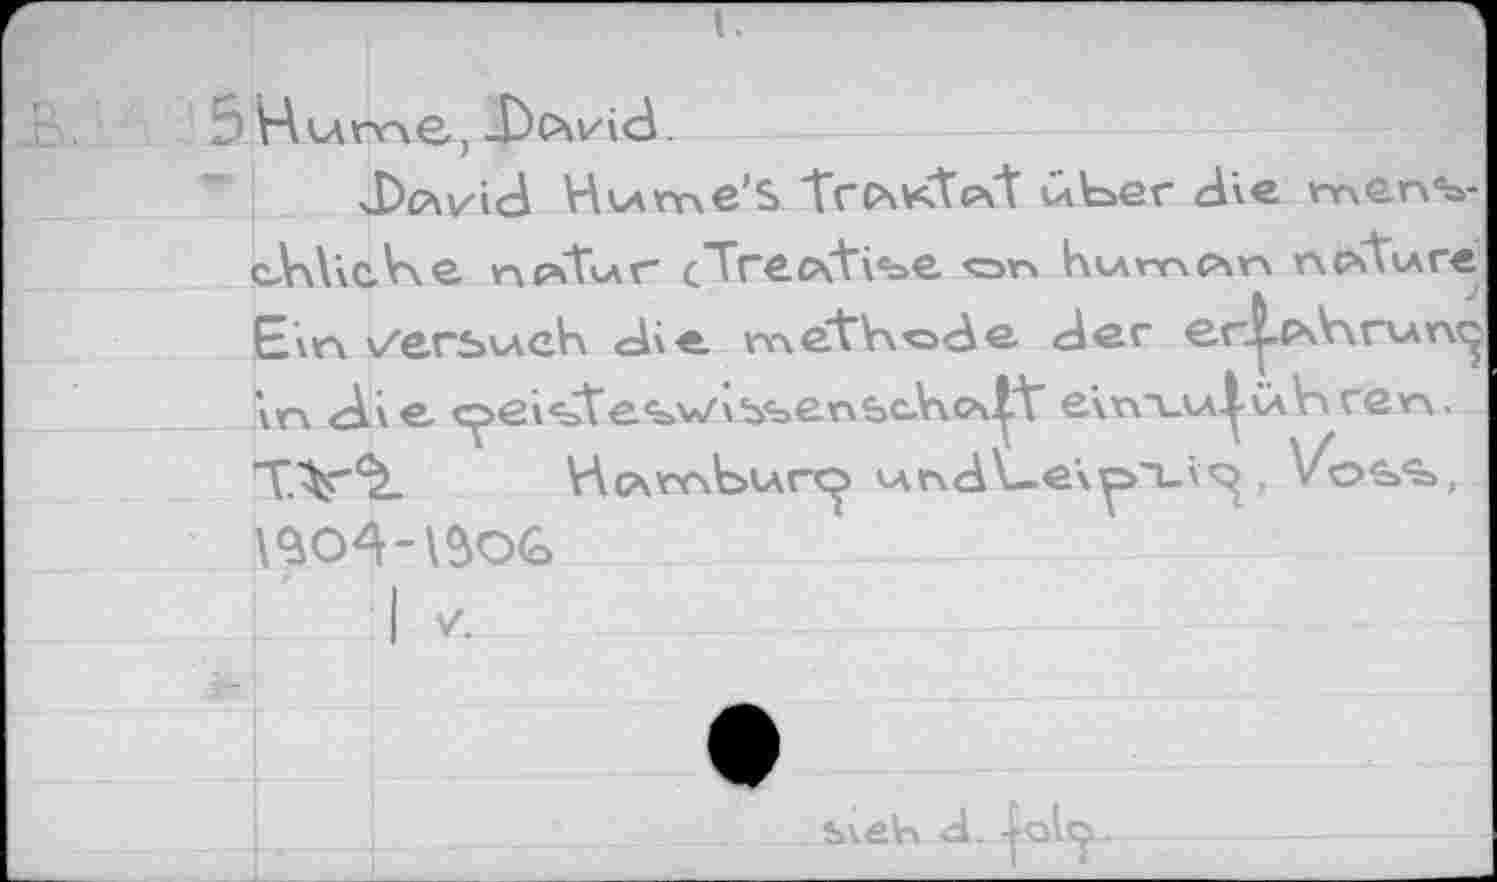 1.
B. 5 Hume, David.
David Hume's traktat über die mens-
chliche natur (Treatise on human nature)
Ein versuch die methode der erfahrung
in die geisteswissenschaft einzuführen.
Hamburg und Leipzig, Voss,
1904-1906
| v.
sieh d. folg.